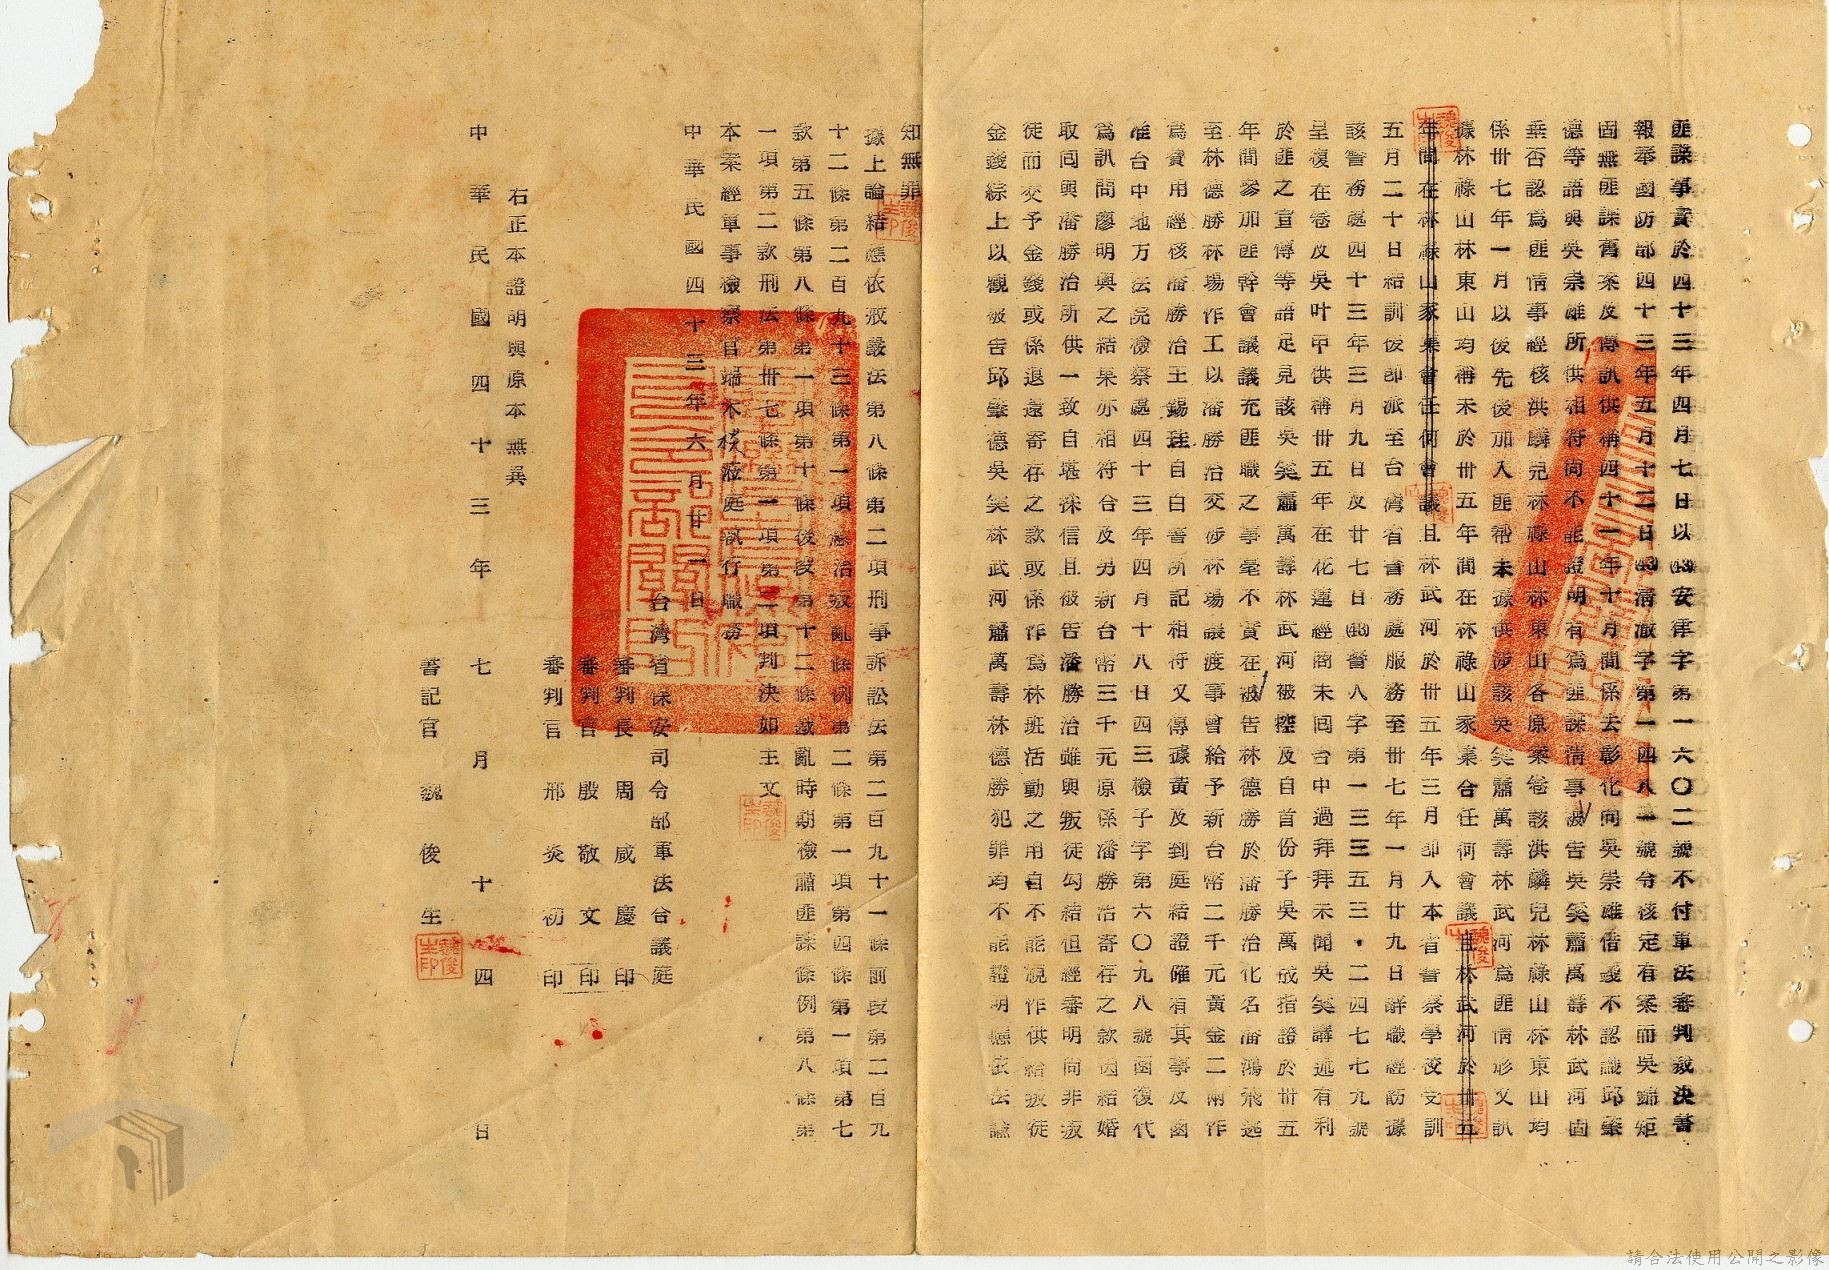 匪諜事實於四十三年四月七日以(43)安律字第一六〇二號不付軍法審判裁決書
報奉國防部四十三年五月十二日(43)清澈字第一四八一號令核定有案而吳錦矩
固無匪諜舊案及傳訊供稱四十一年十月間係去彰化向吳崇雄借錢不認識邱肇
德等語與吳崇雄所供相符尚不能證明有為匪諜情事被告吳笑蕭萬壽林武河固
乘否認為匪情事經核洪麟兒林祿山林東山各原案卷該洪麟兒林祿山林東山均
係卅七年一月以後先後加入匪幫未據供涉該吳笑蕭萬壽林武河為匪情形又訊
據林祿山林東山均稱未於卅五年間在林祿山家集合任何會議且林武河於卅五
年間在林祿山家集會任何會議且林武河於卅五年三月即入本省警察學校受訓
五月二十日結訓後即派至台灣省警務處服務至卅七年一月廿九日辭職經訪據
該警務處四十三年三月九日及廿七日(43)警八字第一三三五三・二四七七九號
呈復在卷及吳叶甲供稱卅五年在花蓮經商未回台中過拜拜未聞吳笑講述有利
於匪之宣傳等語足見該吳笑蕭萬壽林武河被控及自首份子吳萬成指證於卅五
年間參加匪幹會議充匪職之事毫不實在被告林德勝於潘勝治化名潘鴻飛逃
至林德勝林場作工以潘勝治交涉林場議渡事會給予新台幣二千元黃金二兩作
為費用經核潘勝治王錫珪自白書所記相符又傳據黃及到庭結證確有其事及函
准台中地方法院檢察處四十三年四月十八日四三檢子字第六〇九八號函復代
為訊問廖明興之結果亦相符合及另新台幣三千元原係潘勝治寄存之款因結婚
取回與潘勝治所供一致自堪採信且被告潘勝治雖與叛徒勾結但經審明尚非叛
徒而交予金錢或係退還寄存之款或係作為林班活動之用自不能視作供給叛徒
金錢綜上以觀被告邱肇德吳笑林武河蕭萬壽林德勝犯罪均不能證明應依法諭
知無罪
據上論結應依戒嚴法第八條第二項刑事訴訟法第二百九十一條前段第二百九
十二條第二百九十三條第一項懲治叛亂條例第二條第一項第四條第一項第七
款第五條第八條第一項第十條後段第十二條戡亂時期檢肅匪諜條例第八條第
一項第二款刑法第卅七條第一項第二項判決如主文
本案經軍事檢察官端木棪蒞庭執行職務
中華民國四十三年六月廿一日
台灣省保安司令部軍法合議庭
審判長 周咸慶 印
審判官 殷敬文 印
審判官 邢炎初 印
右正本證明與原本無異
中華民國四十三年七月十四日
書記官 魏俊生
魏俊生印
請合法使用公開之影像